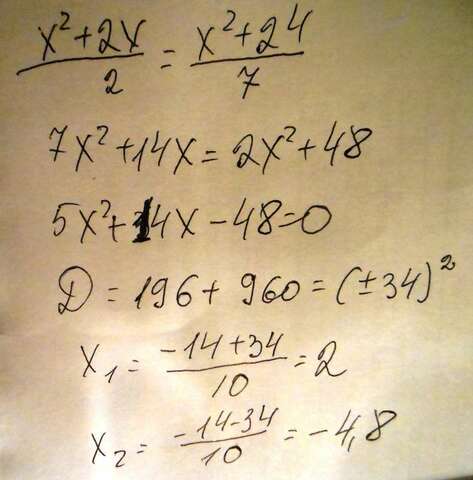 x²+2x/2 = x²+24/7
7x²+14x=2x²+48
5x²+14x-48=0
D=196+960=(±34)²
x₁=-14+34/10=2
x₂=-14-34/10=-4,8